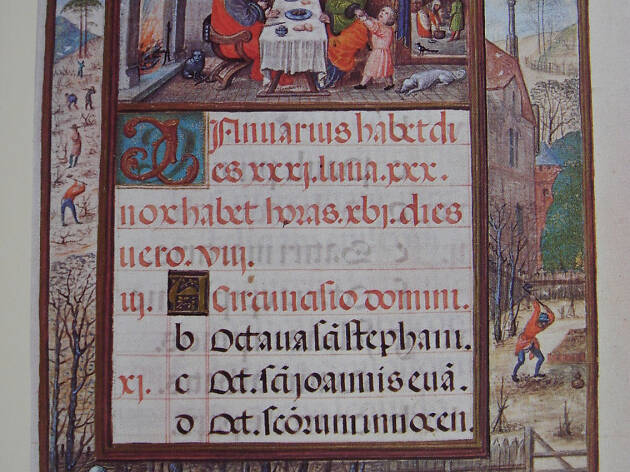 KL Januarius habet di
es xxxi. luna. xxx.
nox habet horas. xvi. dies
uero. viii.
iii. A Circuncisio domini.
b Octaua scī stephani.
xi. c Oct. scī ioannis euā.
d Oct. scōrum innocen.